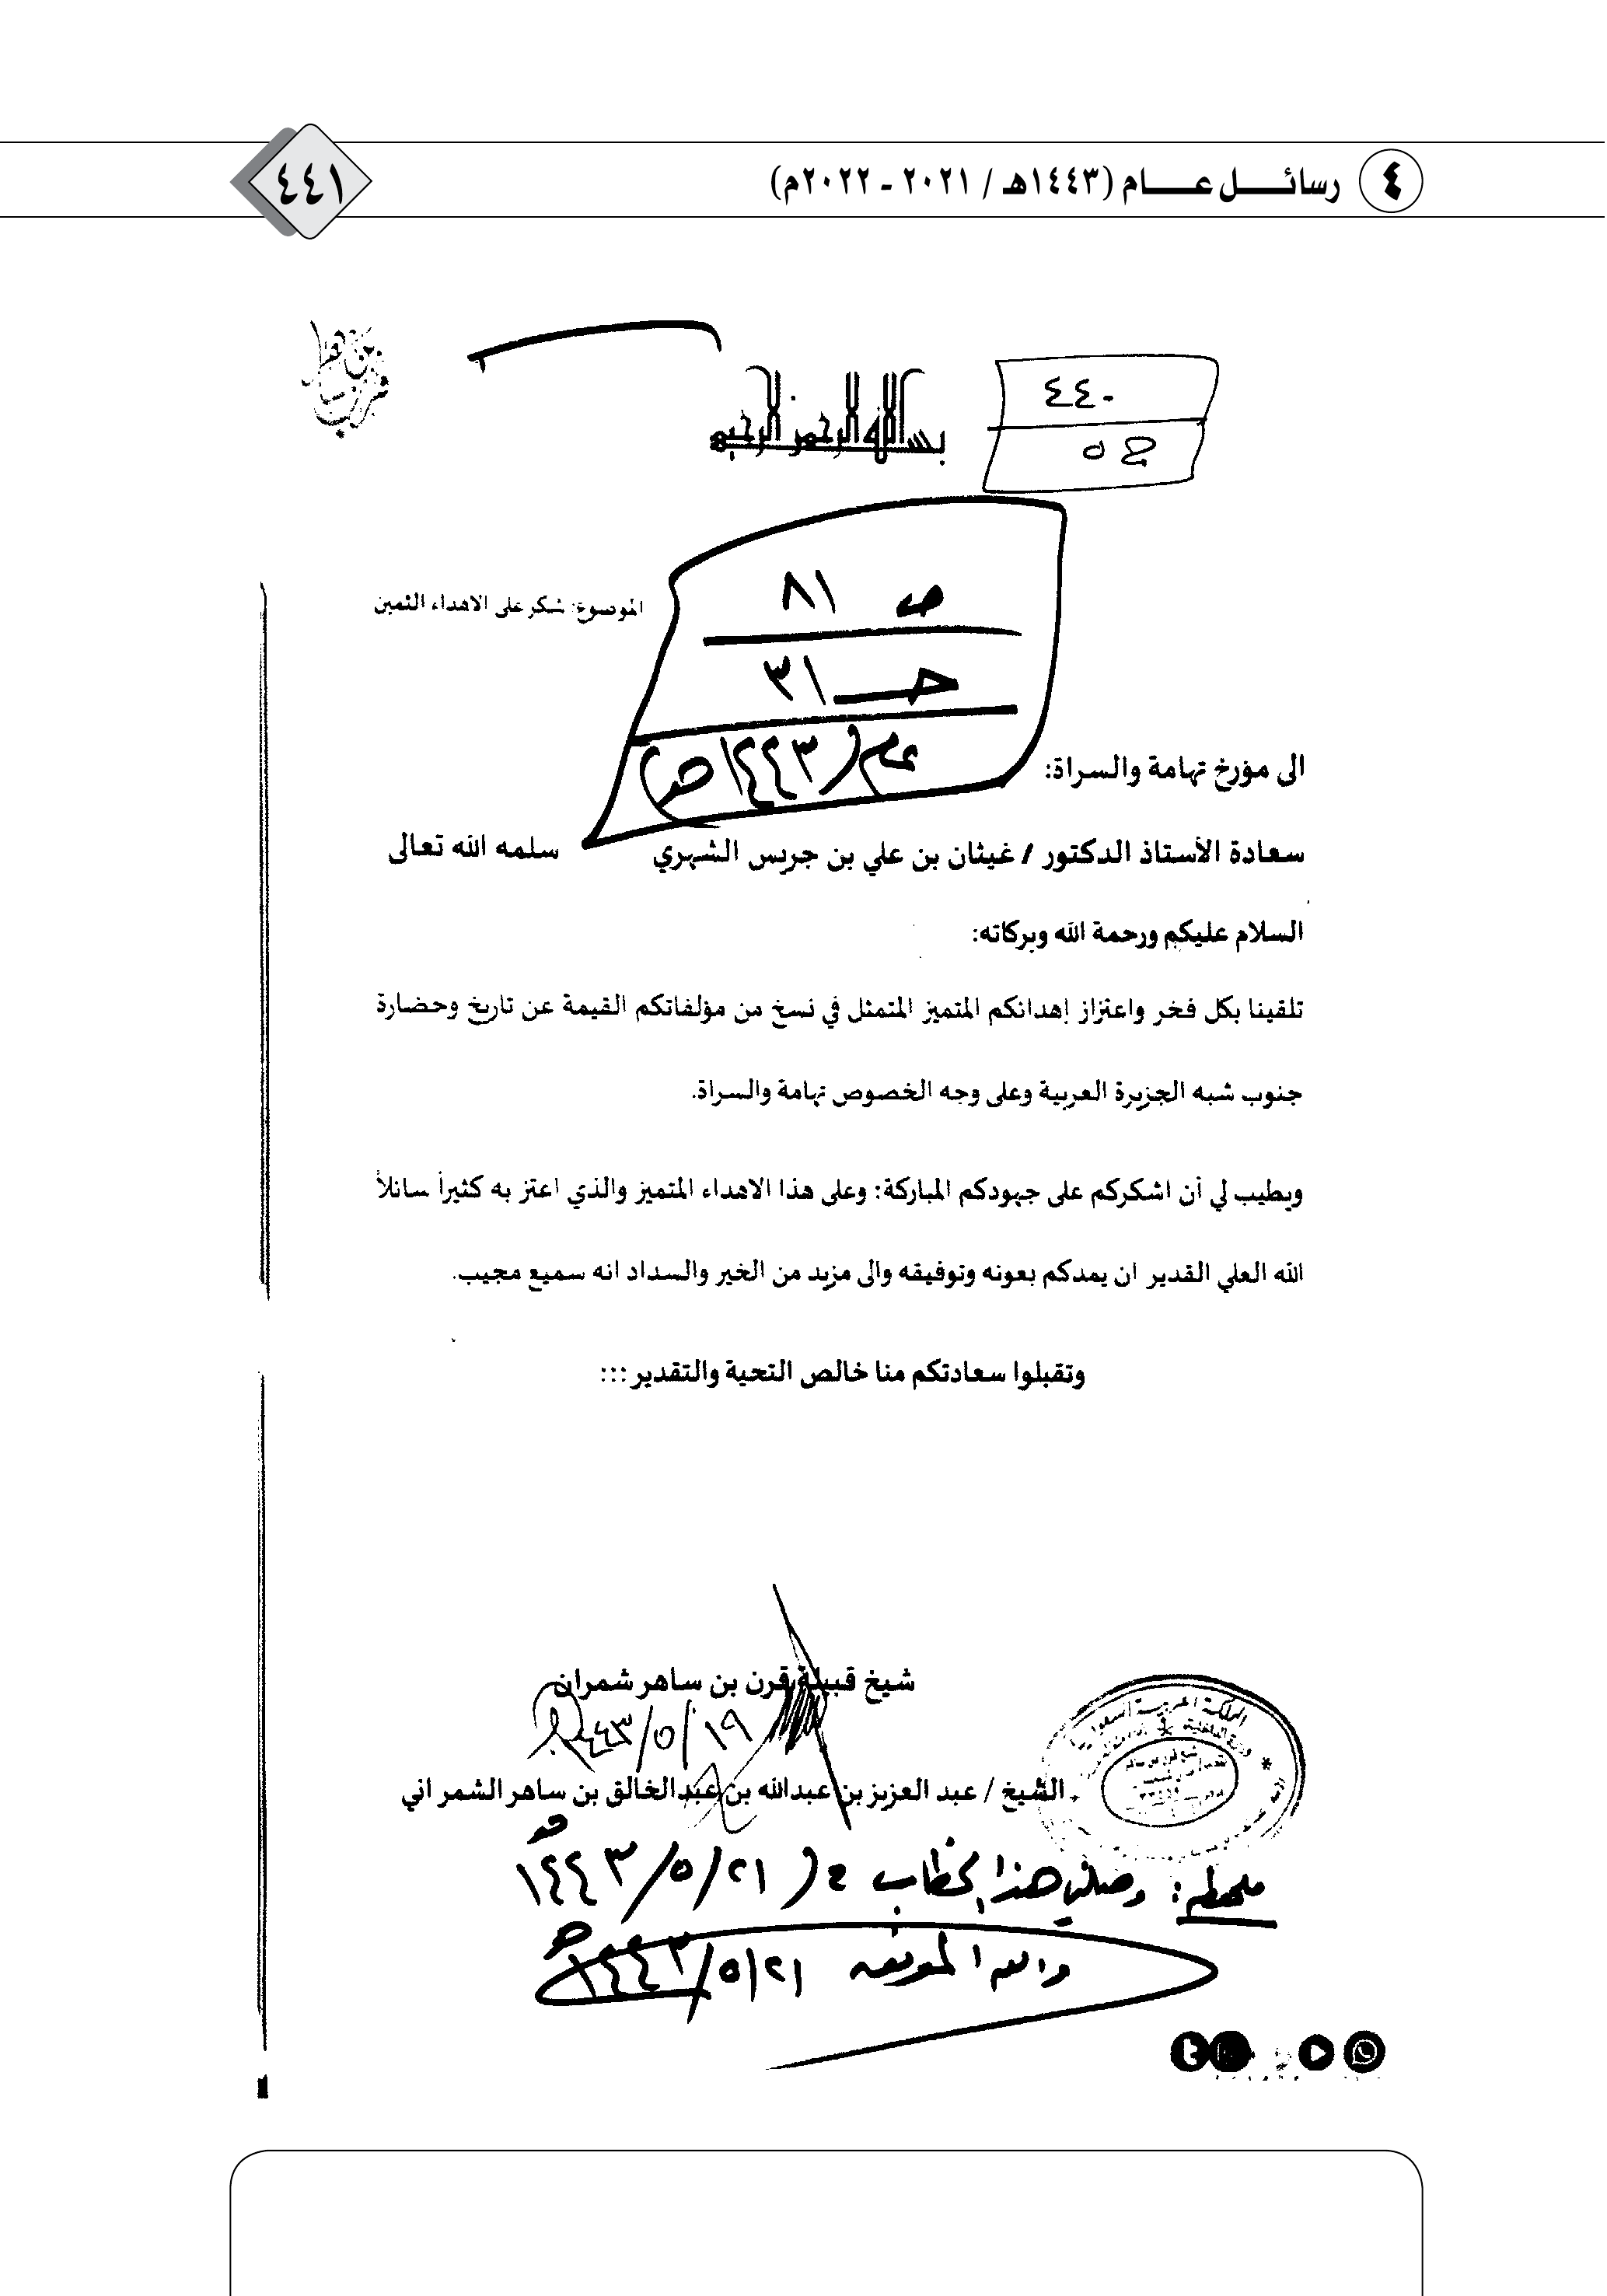 ٤ رسائل عام (١٤٤٣هـ / ٢٠٢١ - ٢٠٢٢م)
٤٤١
بسم الله الرحمن الرحيم
٤٤٠
ج ٥
ص ٨١
جـ ٣١
عام (١٤٤٣هـ)
الموضوع: شكر على الاهداء الثمين
الى مؤرخ تهامة والسراة:
سعادة الأستاذ الدكتور / غيثان بن علي بن جريس الشهري سلمه الله تعالى
السلام عليكم ورحمة الله وبركاته:
تلقينا بكل فخر واعتزاز إهدائكم المتميز المتمثل في نسخ من مؤلفاتكم القيمة عن تاريخ وحضارة
جنوب شبه الجزيرة العربية وعلى وجه الخصوص تهامة والسراة.
ويطيب لي أن اشكركم على جهودكم المباركة: وعلى هذا الاهداء المتميز والذي اعتز به كثيراً سائلاً
الله العلي القدير ان يمدكم بعونه وتوفيقه والى مزيد من الخير والسداد انه سميع مجيب.
وتقبلوا سعادتكم منا خالص التحية والتقدير:::
شيخ قبيلة قرن بن ساهر شمران
١٩/٥/١٤٤٣هـ
الشيخ / عبد العزيز بن عبدالله بن عبدالخالق بن ساهر الشمراني
المملكة العربية السعودية
ملحوظة: وصلني هذا الخطاب في (٢١/٥/١٤٤٣هـ
والله الموفق ٢١/٥/١٤٤٣هـ